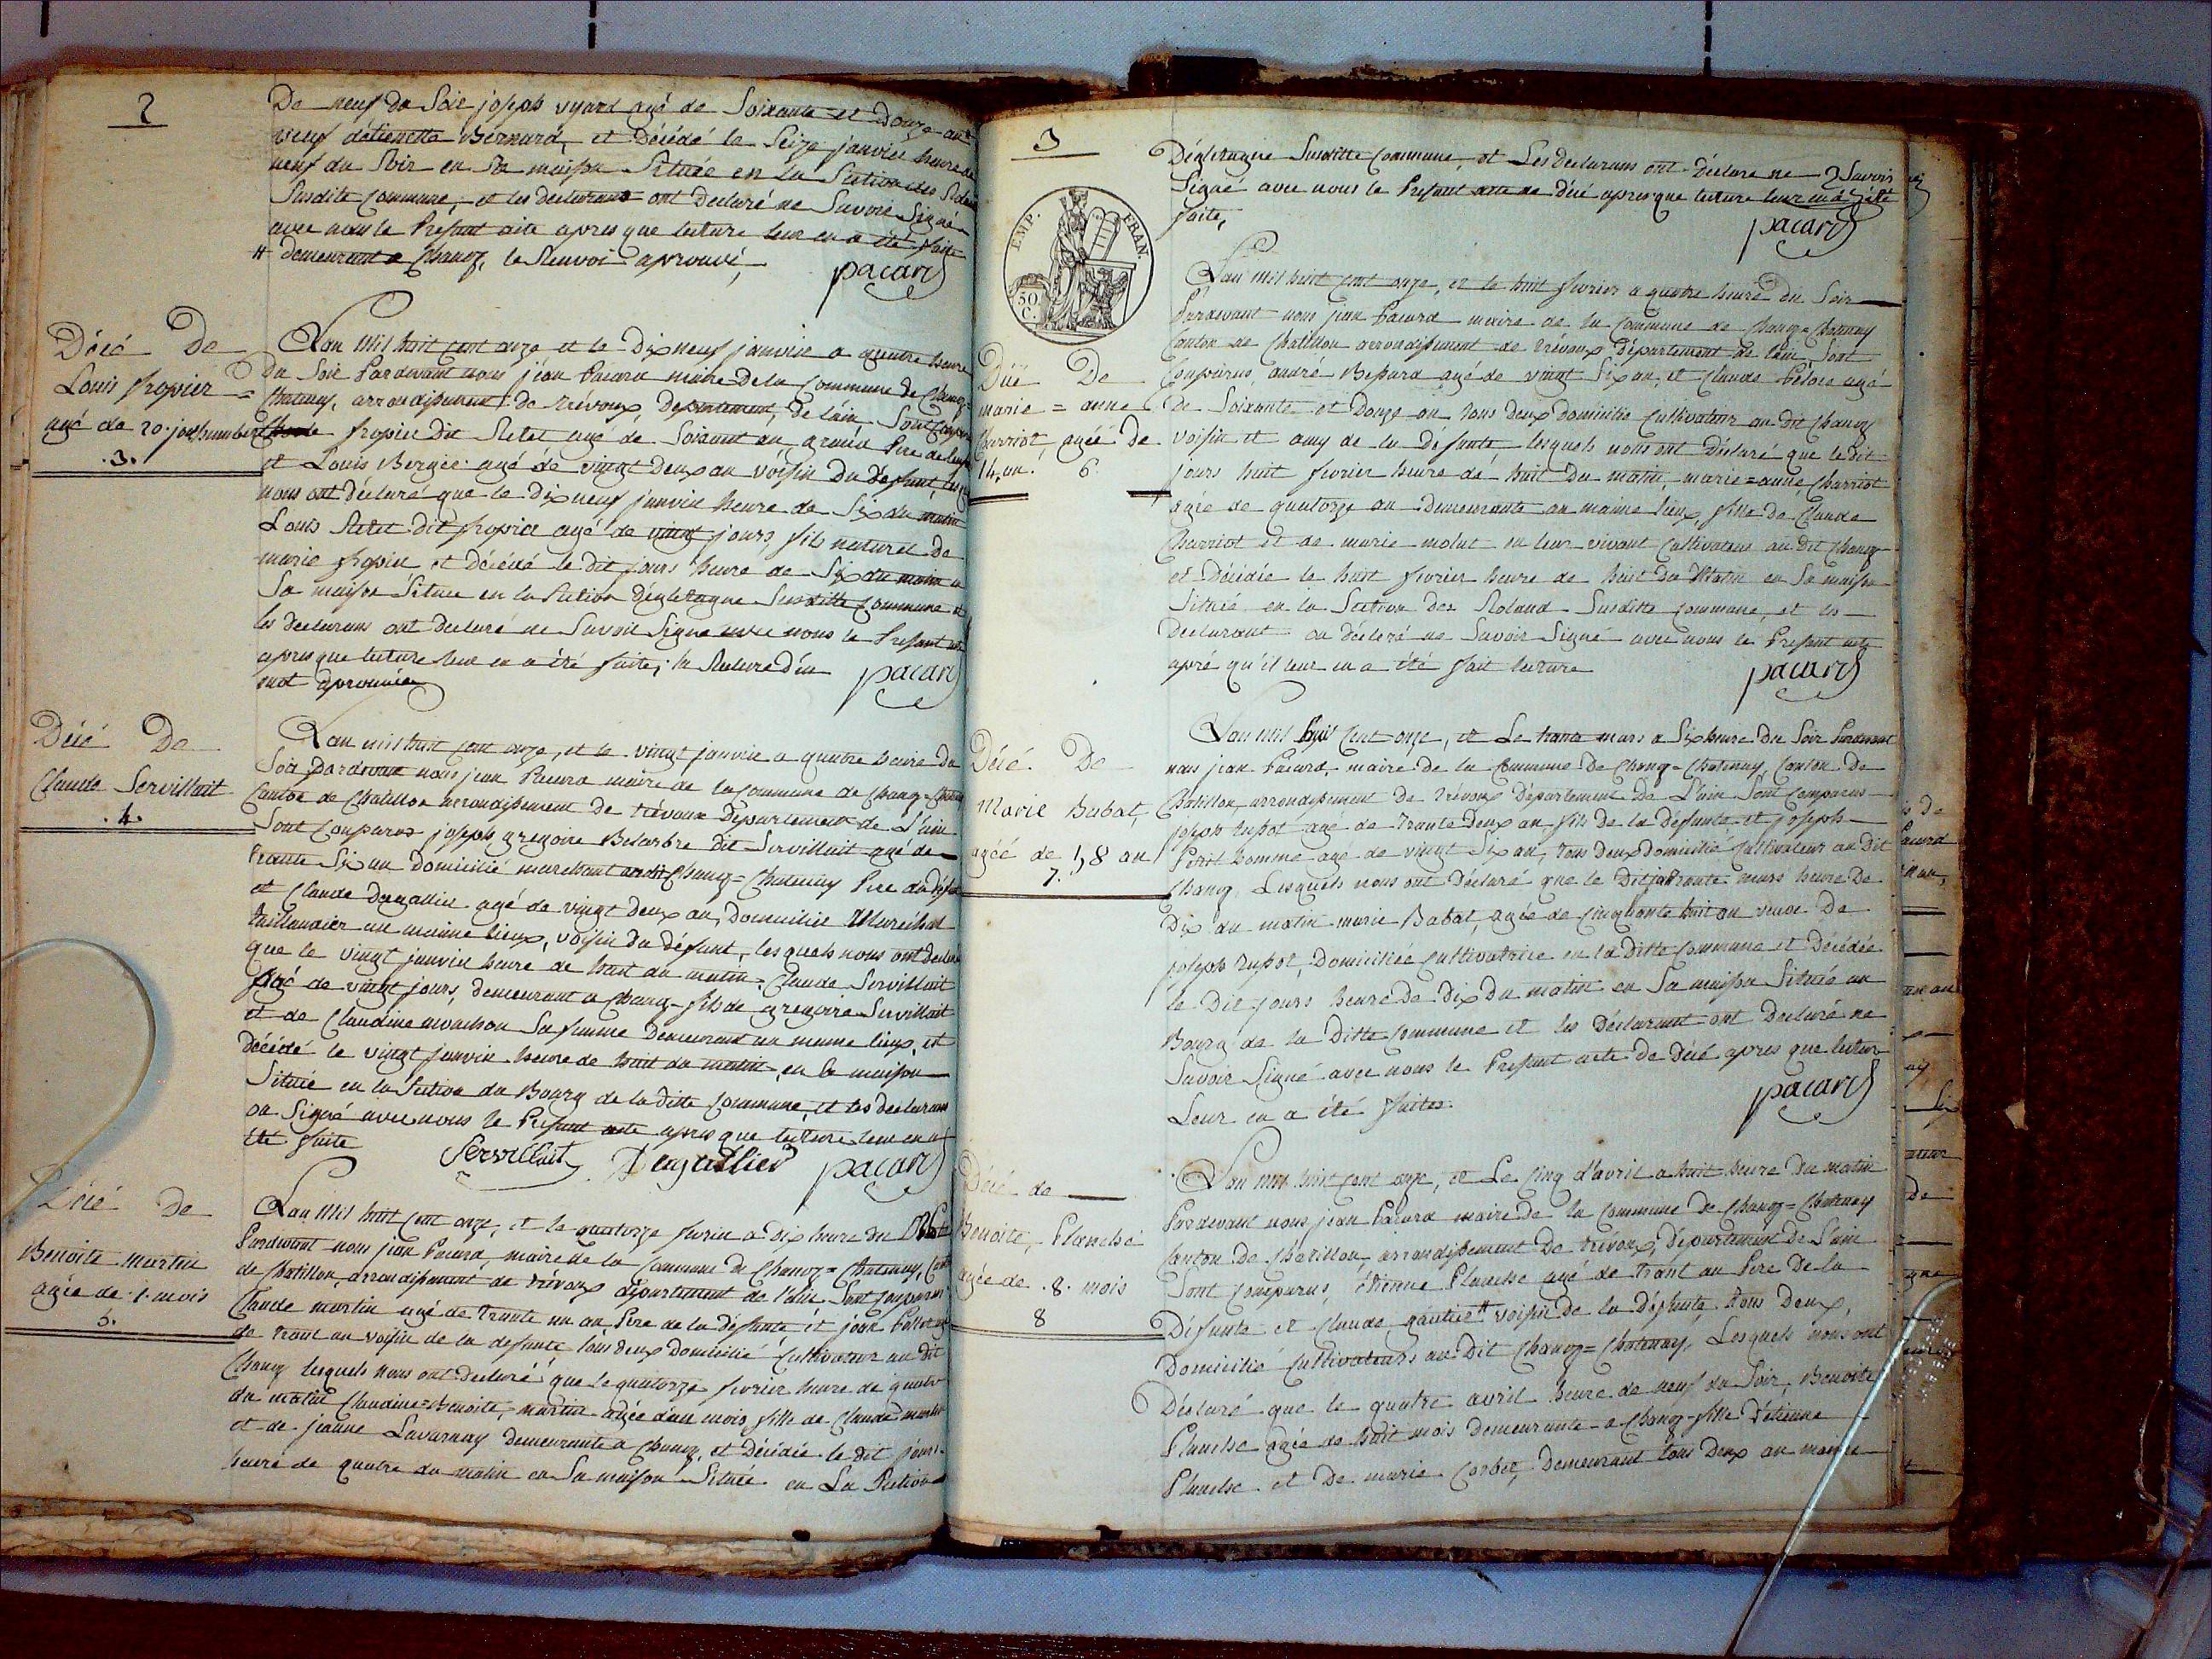 2
De neuf du Soir joseph vyard agé de Soixante et Douze an
veuf détienette Bernard, et Décédé le Seize janvier heure de
neuf du Soir en Sa maison Située en la Section des
Susdite Commune, et les declarans ont Declaré ne Savoir Signé
avec nous le Présent acte apres que lecture leur en a été faite
# demeurant a Chanoz, le Renvoi aprouvé,
pacard
Décé De
Louis fropier
agé de 20 jour
.3.
Lan Mil huit Cent onze et le Dix neuf janvier a quatre heure
du Soir Pardevant nous jean Pacard maire de la Commune de Chanoz=
Chatenay, arrondissement de trévoux, departement, de lain, Sont
fropier Dit Retet agé de Soixant an, grand Pere
et Louis Berger agé de vingt Deux an voisin du Défunt,
nous ont déclaré que le Dix neuf janvier heure de Six du matin
Louis Retet dit fropier agé de vingt jours, fils naturel de
marie fropier et Décédé le dit jours heure de Six du matin
Sa maison Située en la Section dégletagne Susditte Commune et
les declarans ont declaré ne Savoir Signé avec nous le Présent acte
apres que lecture leur en a été faite; la Rature d'un
mot aprouvée
pacard
Décé De
Claude Servillait
.4.
Lan mil huit cent onze, et le vingt janvier a quatre heure Du
Soir Pardevant nous jean Pacard maire de la Commune de Chanoz=
Canton de Chatillon arrondissement de trévoux Departement de L'ain
Sont Comparus joseph gregoire Delarbre Dit Servillait agé de
Trante Six an Domicilié marchant audit Chanoz=Chatenay Pere du
et Claude Degallier agé de vingt Deux an, Domicilié Maréchal
taillandier au meme lieux, voisin du défunt, lesquels nous ont declaré
que le vingt janvier heure de huit du matin, Claude Servillait
agé de vingt jours, demeurant a Chanoz fils de gregoire Servillait
et de Claudine monchon Sa femme Demeurant au meme lieux, et
Décédé le vingt janvier heure de huit du matin, en Sa maison
Située en la Section du Bourg de la ditte Commune, et les declarans
on Signé avec nous le Présent acte apres que lecture leur en a
été faite
Servillait Degallier pacard
Décé De
Benoite martin
agée de 1 mois
5.
Lan Mil huit Cent onze, et le quatorze fevrier a Dix heure du
Pardevant nous jean Pacard, maire de la Commune de Chanoz=Chatenay,
de Chatillon arrondissement de trévoux département de l'ain Sont Comparus
Claude martin agé de Trante un an Pere de la défunte, et jean
de trant an voisin de la defunte tous deux Domicilié Cultivateur au dit
Chanoz lesquels nous ont declaré que le quatorze fevrier heure de quatre
du matin Claudine=Benoite, martin agée d'un mois, fille de Claude martin
et de jeanne Lavarnay Demeurante a Chanoz, et Décédée le dit jours
heure de quatre du matin en Sa maison Située en La Section
3
EMP. FRAN.
50 C.
Dégletagne Susditte Commune, et Les declarans ont declare ne Savoir
Signé avec nous le Présent acte de Décé apres que lecture leur en a été
faite,
pacard
Décé De
marie=anne
Charriot, agée de
14, an. 6.
Lan Mil huit Cent onze, et le huit fevrier a quatre heure du Soir
Pardevant nous jean Pacard maire de la Commune de Chanoz=Chatenay
Canton de Chatillon arrondissement de trévoux Département de l'ain, Sont
Comparus, andré Bessard agé de vingt Six an, et Claude agé
de Soixante et Douze an tous deux Domicilié Cultivateur au dit Chanoz
voisin et amy de la Défunte, lesquels nous ont Déclaré que le dit
jours huit fevrier heure de huit du matin, marie=anne, Charriot
agée de quatorze an Demeurante au maime lieux, fille de Claude
Charriot et de marie molut en leur vivant Cultivateur au dit Chanoz
et Décédée le huit fevrier heure de huit du Matin en Sa maison
Située en la Section des Roland Susditte Commune, et les
Declarant on déclaré ne Savoir Signé avec nous le Présent acte
apré qu'il leur en a été fait lecture
pacard
Décé De
Marie Babat,
agée de 58 an
7.
Lan mil huit Cent onze, et Le trante mars a Six heure du Soir Pardevant
nous jean Pacard, maire de la Commune de Chanoz=Chatenay Canton de
Chatillon arrondissement de trévoux Département De L'ain Sont Comparus
joseph agé de Trante Deux an, fils de la défunte et joseph
Petit homme agé de vingt Six an, tous deux domicilié Cultivateur au Dit
Chanoz Lesquels nous ont déclaré que le Dit jour trante mars heure de
Dix du matin marie Babat, agée de Cinquante huit an veuve De
joseph Domiciliée Cultivatrice en la Ditte Commune et Décédée
le Dit jours heure de Dix du matin en Sa maison Située au
Bourg de la Ditte Commune et les Déclarant ont Declaré ne
Savoir Signé avec nous le Présent acte de Décé apres que lecture
Leur en a été faites.
pacard
Décé de
Benoite, Planche
agée de .8. mois
8
Lan Mil huit Cent onze, et Le Cinq d'avril a huit heure du matin
Pardevant nous jean Pacard maire de la Commune de Chanoz=Chatenay
Canton de Chatillon, arrondissement De trévoux, département de L'ain
Sont Comparus, étienne Planche agé de Trant an Pere De la
Défunte et Claude gautier # voisin de la Défunte, tous Deux,
Domicilié Cultivateurs au Dit Chanoz=Chatenay, Lesquels nous ont
Déclaré que le quatre avril heure de neuf du Soir, Benoite
Planche agée de huit mois Demeurante a Chanoz fille d'étienne
Planche et De marie Corbet, Demeurant tous Deux au maime